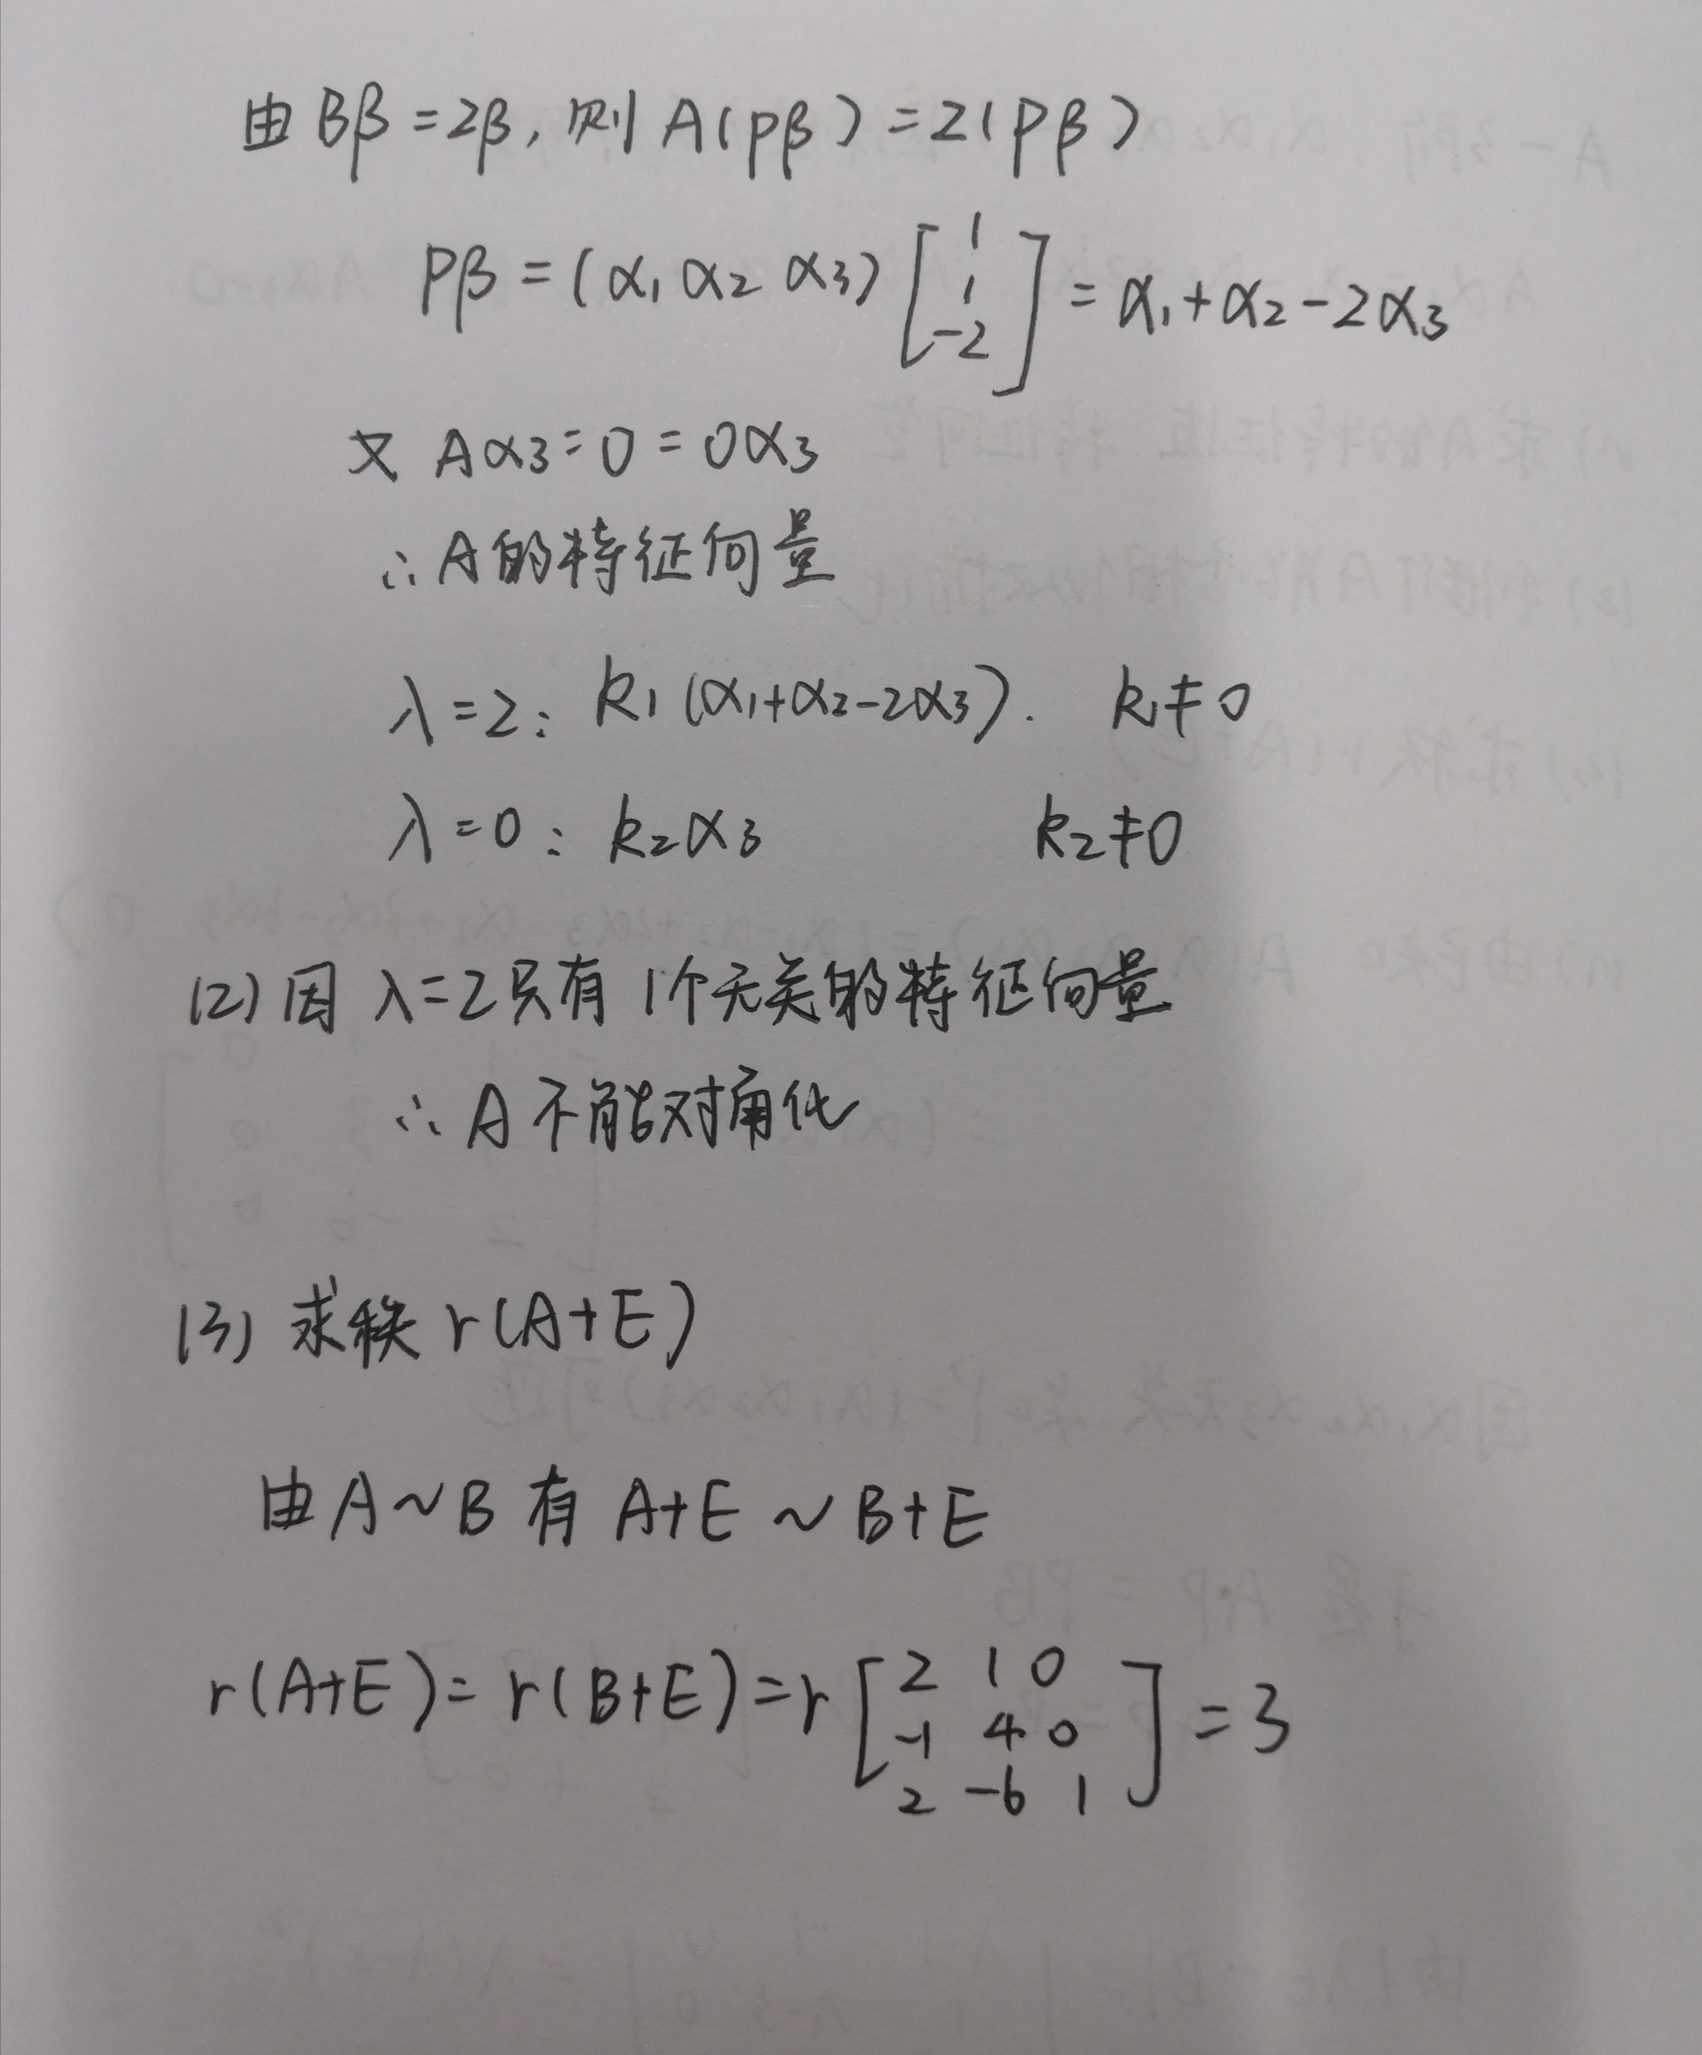 由 Bβ=2β, 则 A(Pβ)=2(Pβ)
Pβ=(α₁ α₂ α₃)[1 1 -2]=α₁+α₂-2α₃
又 Aα₃=0=0α₃
∴A的特征向量
λ=2: k₁(α₁+α₂-2α₃). k₁≠0
λ=0: k₂α₃ k₂≠0
(2) 因 λ=2只有1个无关的特征向量
∴A不能对角化
(3) 求秩 r(A+E)
由 A~B 有 A+E ~ B+E
r(A+E)=r(B+E)=r[2 1 0
-1 4 0
2 -6 1]=3